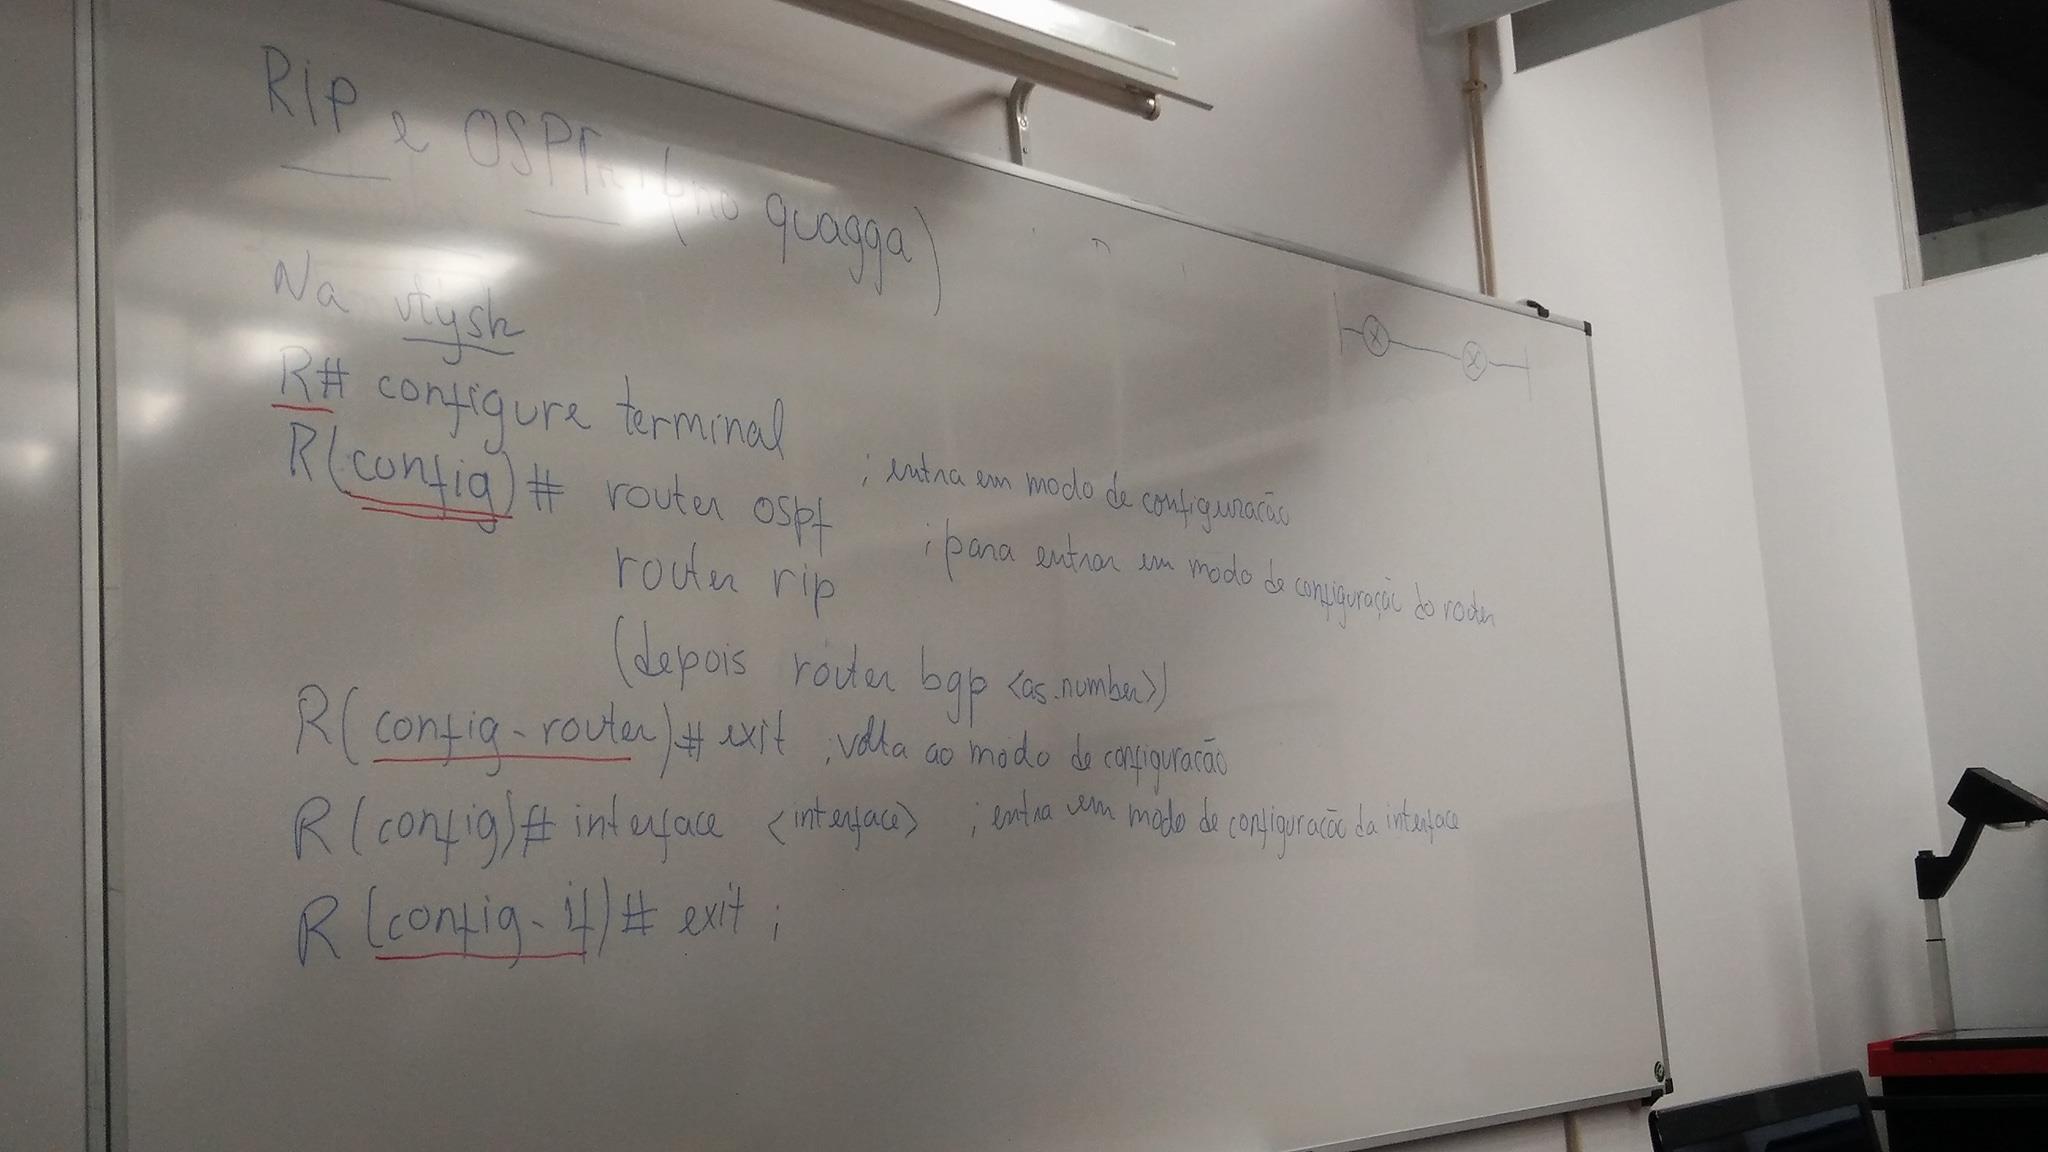 RIP e OSPF (no quagga)
Na vtysh
R# configure terminal ; entra em modo de configuração
R(config)# router ospf ; para entrar em modo de configuração do router
router rip
(depois router bgp <as.number>)
R(config-router)# exit ; volta ao modo de configuração
R(config)# interface <interface> ; entra em modo de configuração da interface
R(config-if)# exit ;